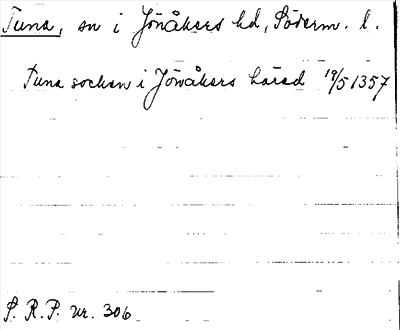 Tuna, sn i Jönåkers hd, Söderm. l.
Tuna socken i Jönåkers härad 19/5 1357
S. R. P. nr. 306